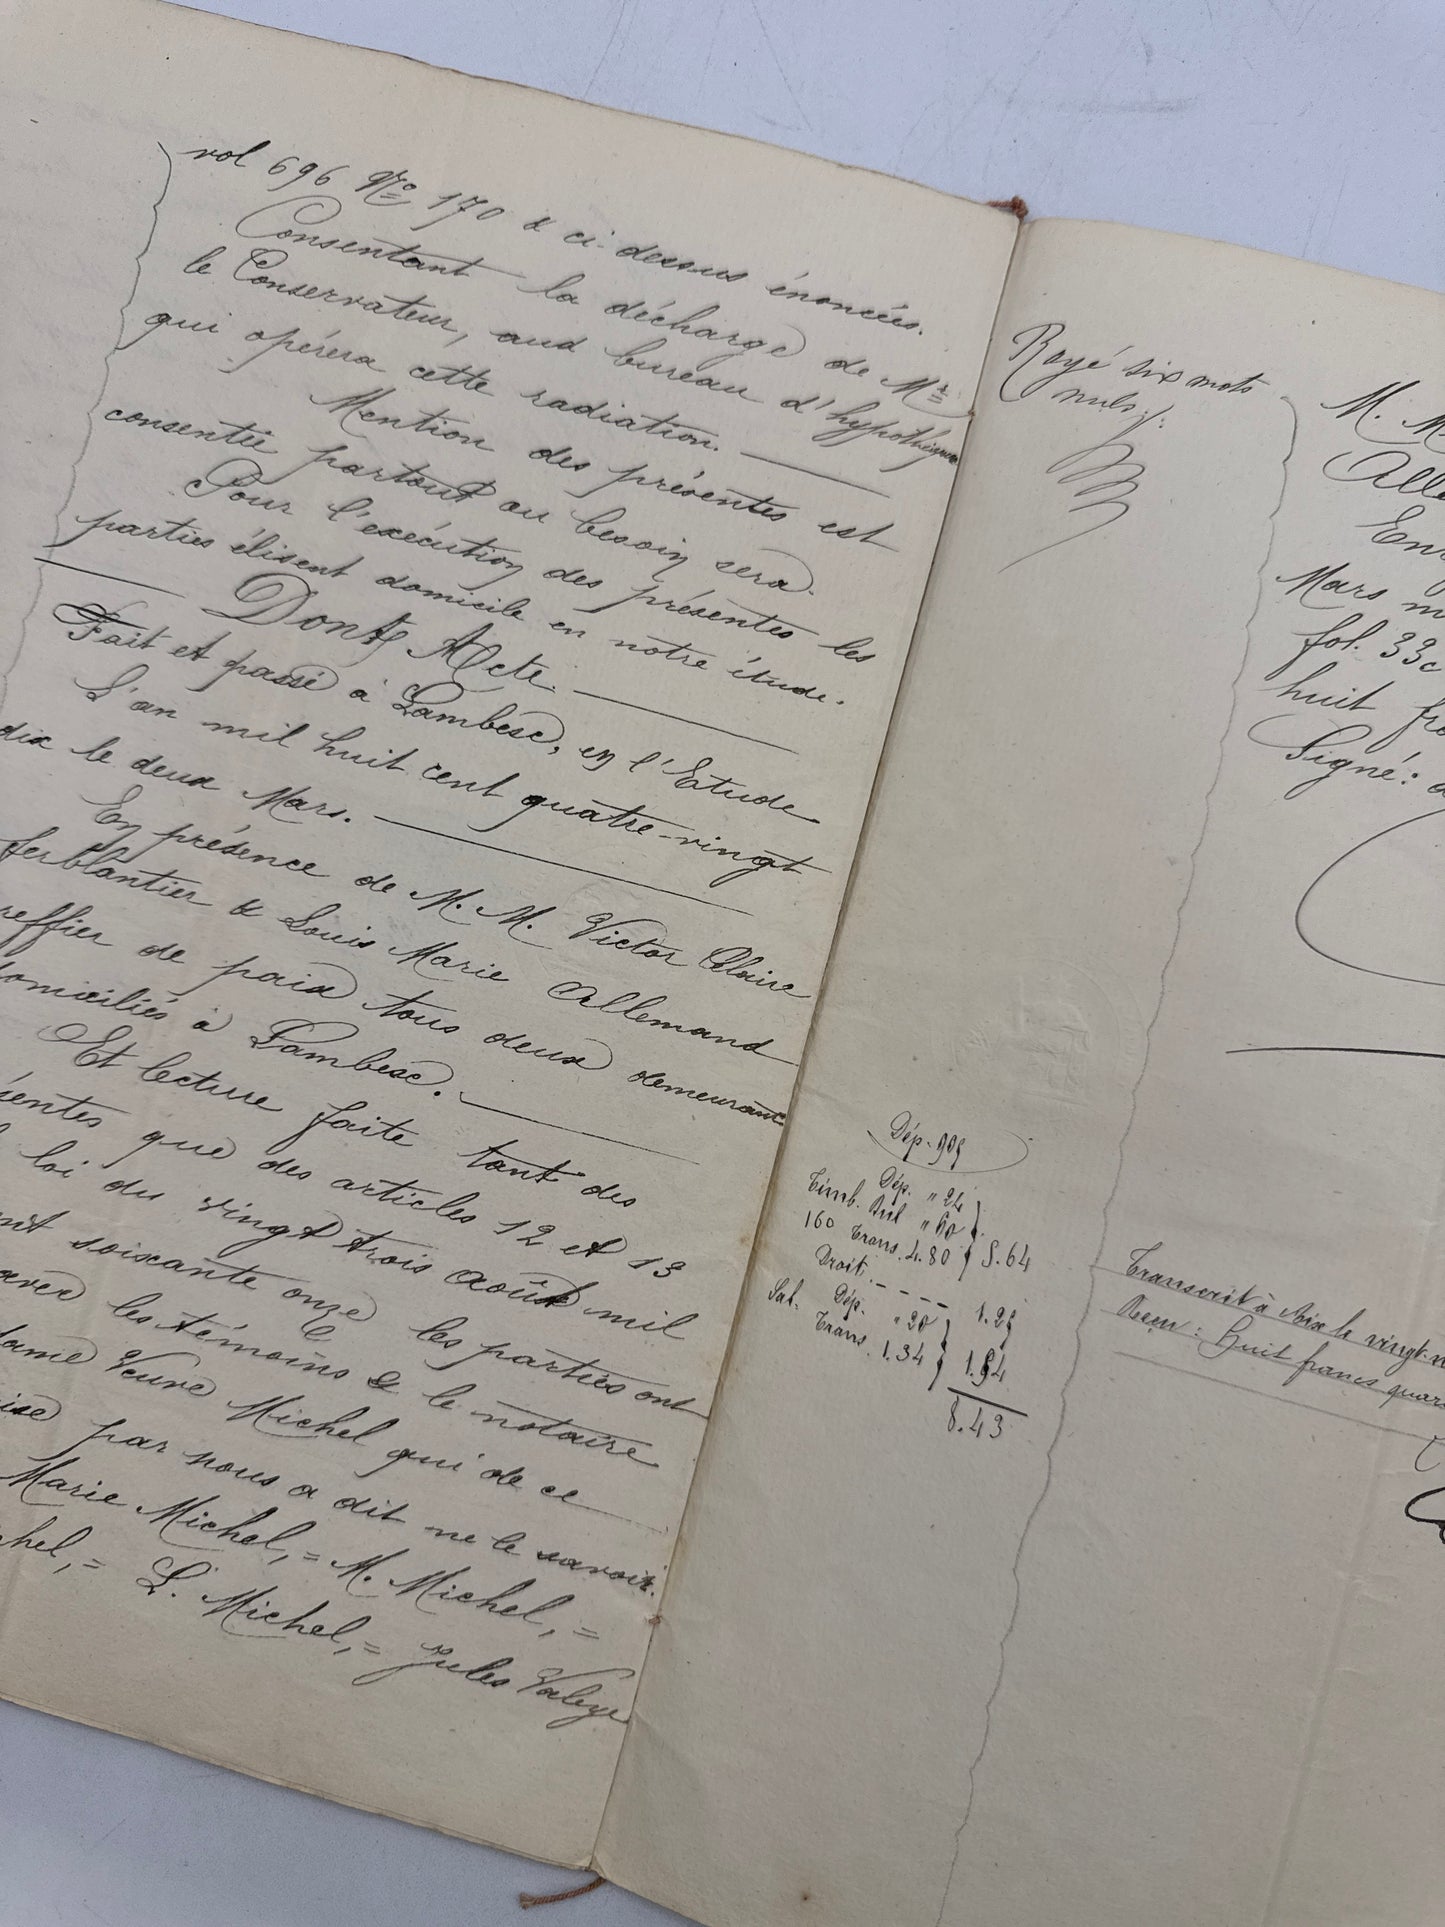 vol 696 N° 170 & ci-dessus énoncées.
Consentant la décharge de Mr
le Conservateur, aux bureau d'hypothèques
qui opérera cette radiation.
Mention des présentes est
consentie partout ou besoin sera.
Pour l'exécution des présentes les
parties élisent domicile en notre étude.
Dont Acte.
Fait et passé à Lambesc, en l'Etude
L'an mil huit cent quatre-vingt
dix le deux Mars.
En présence de M. M. Victor Claire
ferblantier & Louis Marie Allemand
reffier de paix tous deux demeurant
domiciliés à Lambesc.
Et lecture faite tant des
sentes que des articles 12 et 13
loi du vingt trois août mil
ent soixante onze les parties ont
avec les témoins & le notaire
dame Veuve Michel qui de ce
ise par nous a dit ne le savoir.
Marie Michel, = M. Michel, =
chel, = L. Michel, = Jules
Rayé six mots
nuls
M. M
Alle
En
Mars m
fol. 33 c
huit fra
Signé:
Dép.
Dép. " 24
Timb. " 60
160 Trans. 4.80 5.64
Droit 1.25
Sal. Dép. " 20
Trans. 1.34 1.54
8.43
Transcrit à Aix le vingt-
Reçu: Huit francs quar